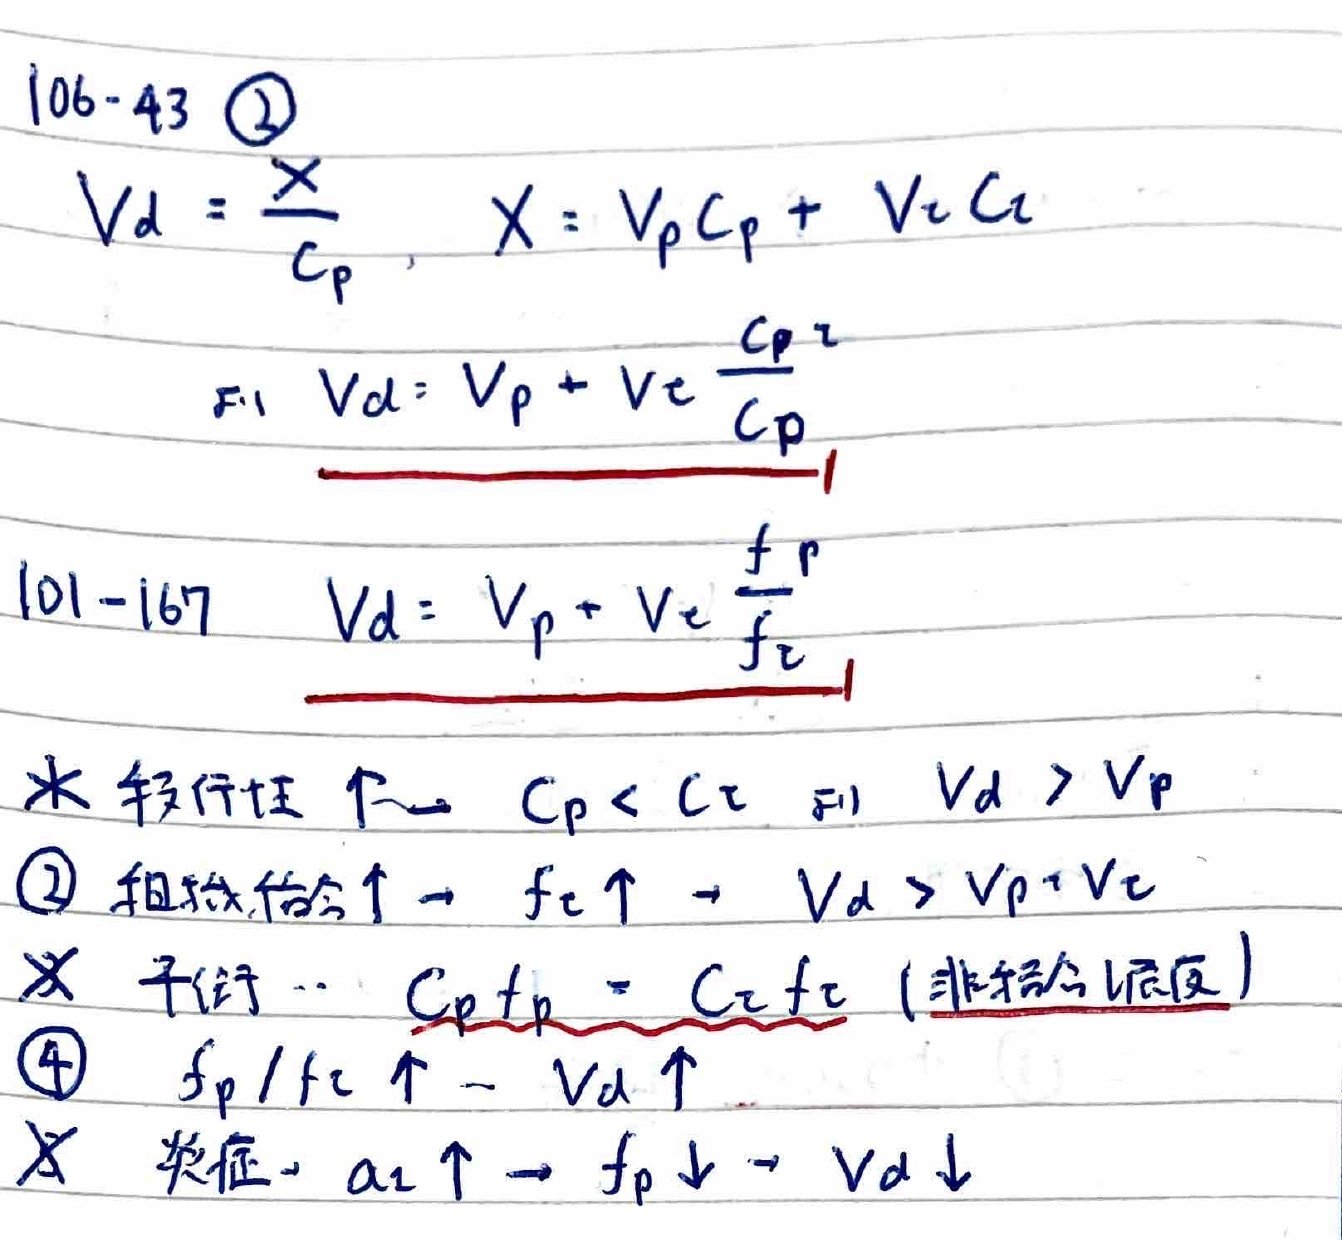 106-43 ②
Vd = X/Cp , X = VpCp + VτCτ
より Vd = Vp + Vτ Cpτ/Cp
101-167 Vd = Vp + Vτ fp/fτ
移行性 ↑→ Cp < Cτ より Vd > Vp
② 組織結合↑ → fτ↑ → Vd > Vp + Vτ
平衡 … Cpfp = Cτfτ (非結合濃度)
④ fp/fτ ↑ – Vd ↑
炎症→ ↑ → fp↓ → Vd↓